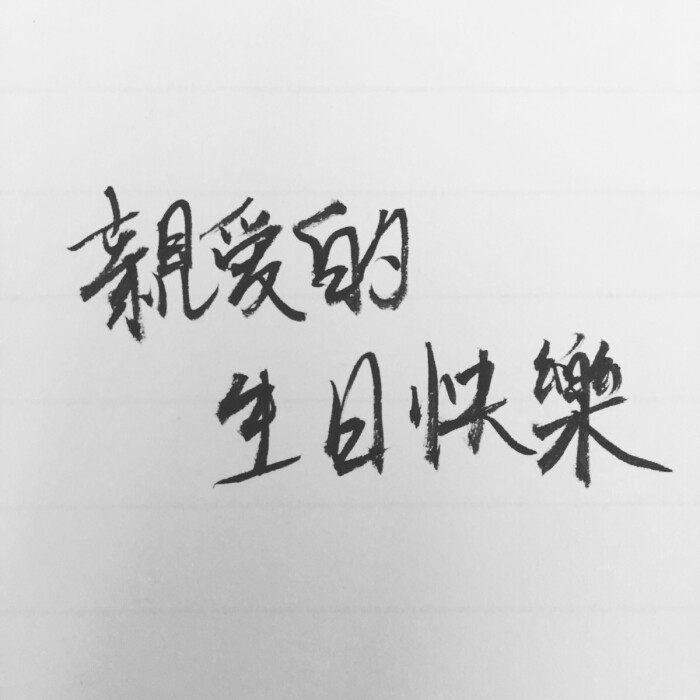 親爱的
生日快樂